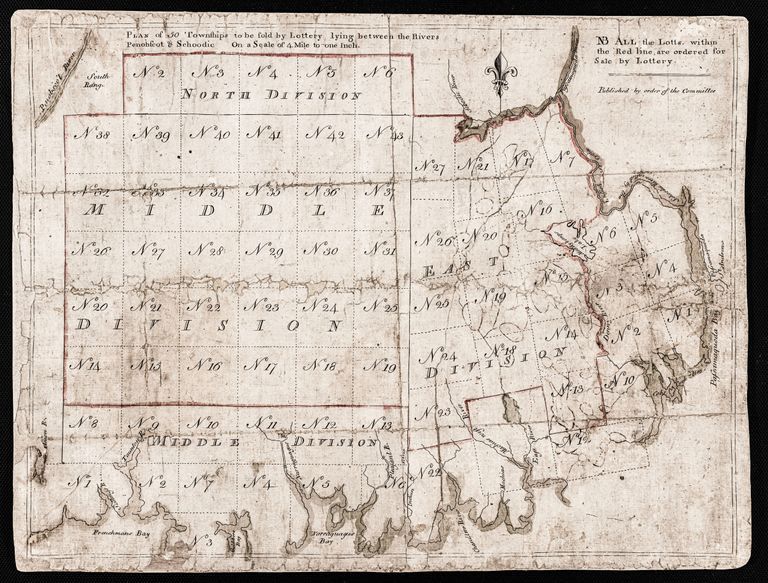 PLAN of 50 Townships to be sold by Lottery lying between the Rivers
Penobscot & Schoodic On a Scale of 4 Mile to one Inch.
NB ALL the Lotts within
the Red line, are ordered for
Sale by Lottery.
Published by order of the Committee
Penobscot River
South
Rang.
No 2 No 3 No 4 No 5 No 6
NORTH DIVISION
No 38 No 39 No 40 No 41 No 42 No 43
No 27 No 21 No 17 No 7
No 32 No 33 No 34 No 35 No 36 No 37
MIDDLE
No 16 No 6 No 5
No 26 No 27 No 28 No 29 No 30 No 31
No 26 No 20
EAST
No 4
No 3
No 20 No 21 No 22 No 23 No 24 No 25
No 25 No 19
No 1
DIVISION
No 2
No 14 No 15 No 16 No 17 No 18 No 19
No 24 No 18 No 14
DIVISION
No 13 No 10
No 8 No 9 No 10 No 11 No 12 No 13
No 23
No 12
MIDDLE DIVISION
No 1 No 2 No 7 No 4 No 5
No 22
Frenchmans Bay
No 3
Bay